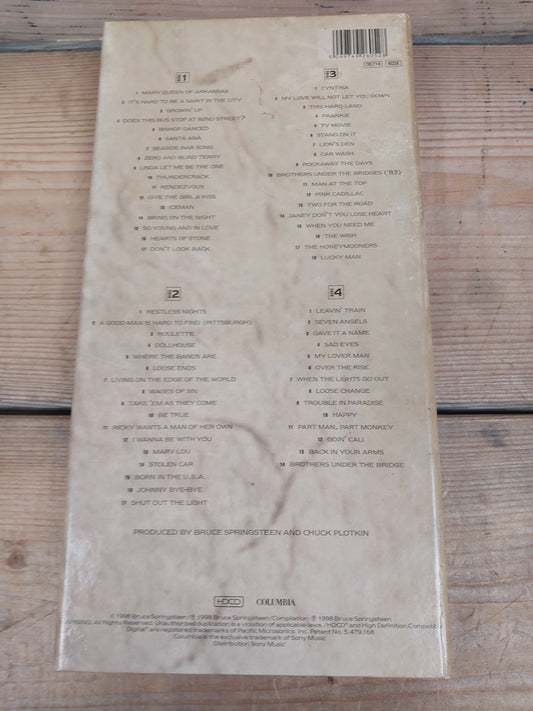 DISC 1
1 MARY QUEEN OF ARKANSAS
2 IT'S HARD TO BE A SAINT IN THE CITY
3 GROWIN' UP
4 DOES THIS BUS STOP AT 82ND STREET?
5 BISHOP DANCED
6 SANTA ANA
7 SEASIDE BAR SONG
8 ZERO AND BLIND TERRY
9 LINDA LET ME BE THE ONE
10 THUNDERCRACK
11 RENDEZVOUS
12 GIVE THE GIRL A KISS
13 ICEMAN
14 BRING ON THE NIGHT
15 SO YOUNG AND IN LOVE
16 HEARTS OF STONE
17 DON'T LOOK BACK
DISC 2
1 RESTLESS NIGHTS
2 A GOOD MAN IS HARD TO FIND (PITTSBURGH)
3 ROULETTE
4 DOLLHOUSE
5 WHERE THE BANDS ARE
6 LOOSE ENDS
7 LIVING ON THE EDGE OF THE WORLD
8 WAGES OF SIN
9 TAKE 'EM AS THEY COME
10 BE TRUE
11 RICKY WANTS A MAN OF HER OWN
12 I WANNA BE WITH YOU
13 MARY LOU
14 STOLEN CAR
15 BORN IN THE U.S.A.
16 JOHNNY BYE-BYE
17 SHUT OUT THE LIGHT
5099749260528
DISC 3
1 CYNTHIA
2 MY LOVE WILL NOT LET YOU DOWN
3 THIS HARD LAND
4 FRANKIE
5 TV MOVIE
6 STAND ON IT
7 LION'S DEN
8 CAR WASH
9 ROCKAWAY THE DAYS
10 BROTHERS UNDER THE BRIDGES ('83)
11 MAN AT THE TOP
12 PINK CADILLAC
13 TWO FOR THE ROAD
14 JANEY DON'T YOU LOSE HEART
15 WHEN YOU NEED ME
16 THE WISH
17 THE HONEYMOONERS
18 LUCKY MAN
DISC 4
1 LEAVIN' TRAIN
2 SEVEN ANGELS
3 GAVE IT A NAME
4 SAD EYES
5 MY LOVER MAN
6 OVER THE RISE
7 WHEN THE LIGHTS GO OUT
8 LOOSE CHANGE
9 TROUBLE IN PARADISE
10 HAPPY
11 PART MAN, PART MONKEY
12 GOIN' CALI
13 BACK IN YOUR ARMS
14 BROTHERS UNDER THE BRIDGE
PRODUCED BY BRUCE SPRINGSTEEN AND CHUCK PLOTKIN
HDCD COLUMBIA
© 1998 Bruce Springsteen/℗ 1998 Bruce Springsteen/Compilation, ℗ 1998 Bruce Springsteen
WARNING: All Rights Reserved. Unauthorized duplication is a violation of applicable laws. /HDCD® and High Definition Compatible
Digital® are registered trademarks of Pacific Microsonics, Inc. Patent No. 5,479,168
Columbia is the exclusive trademark of Sony Music
Distribution Sony Music